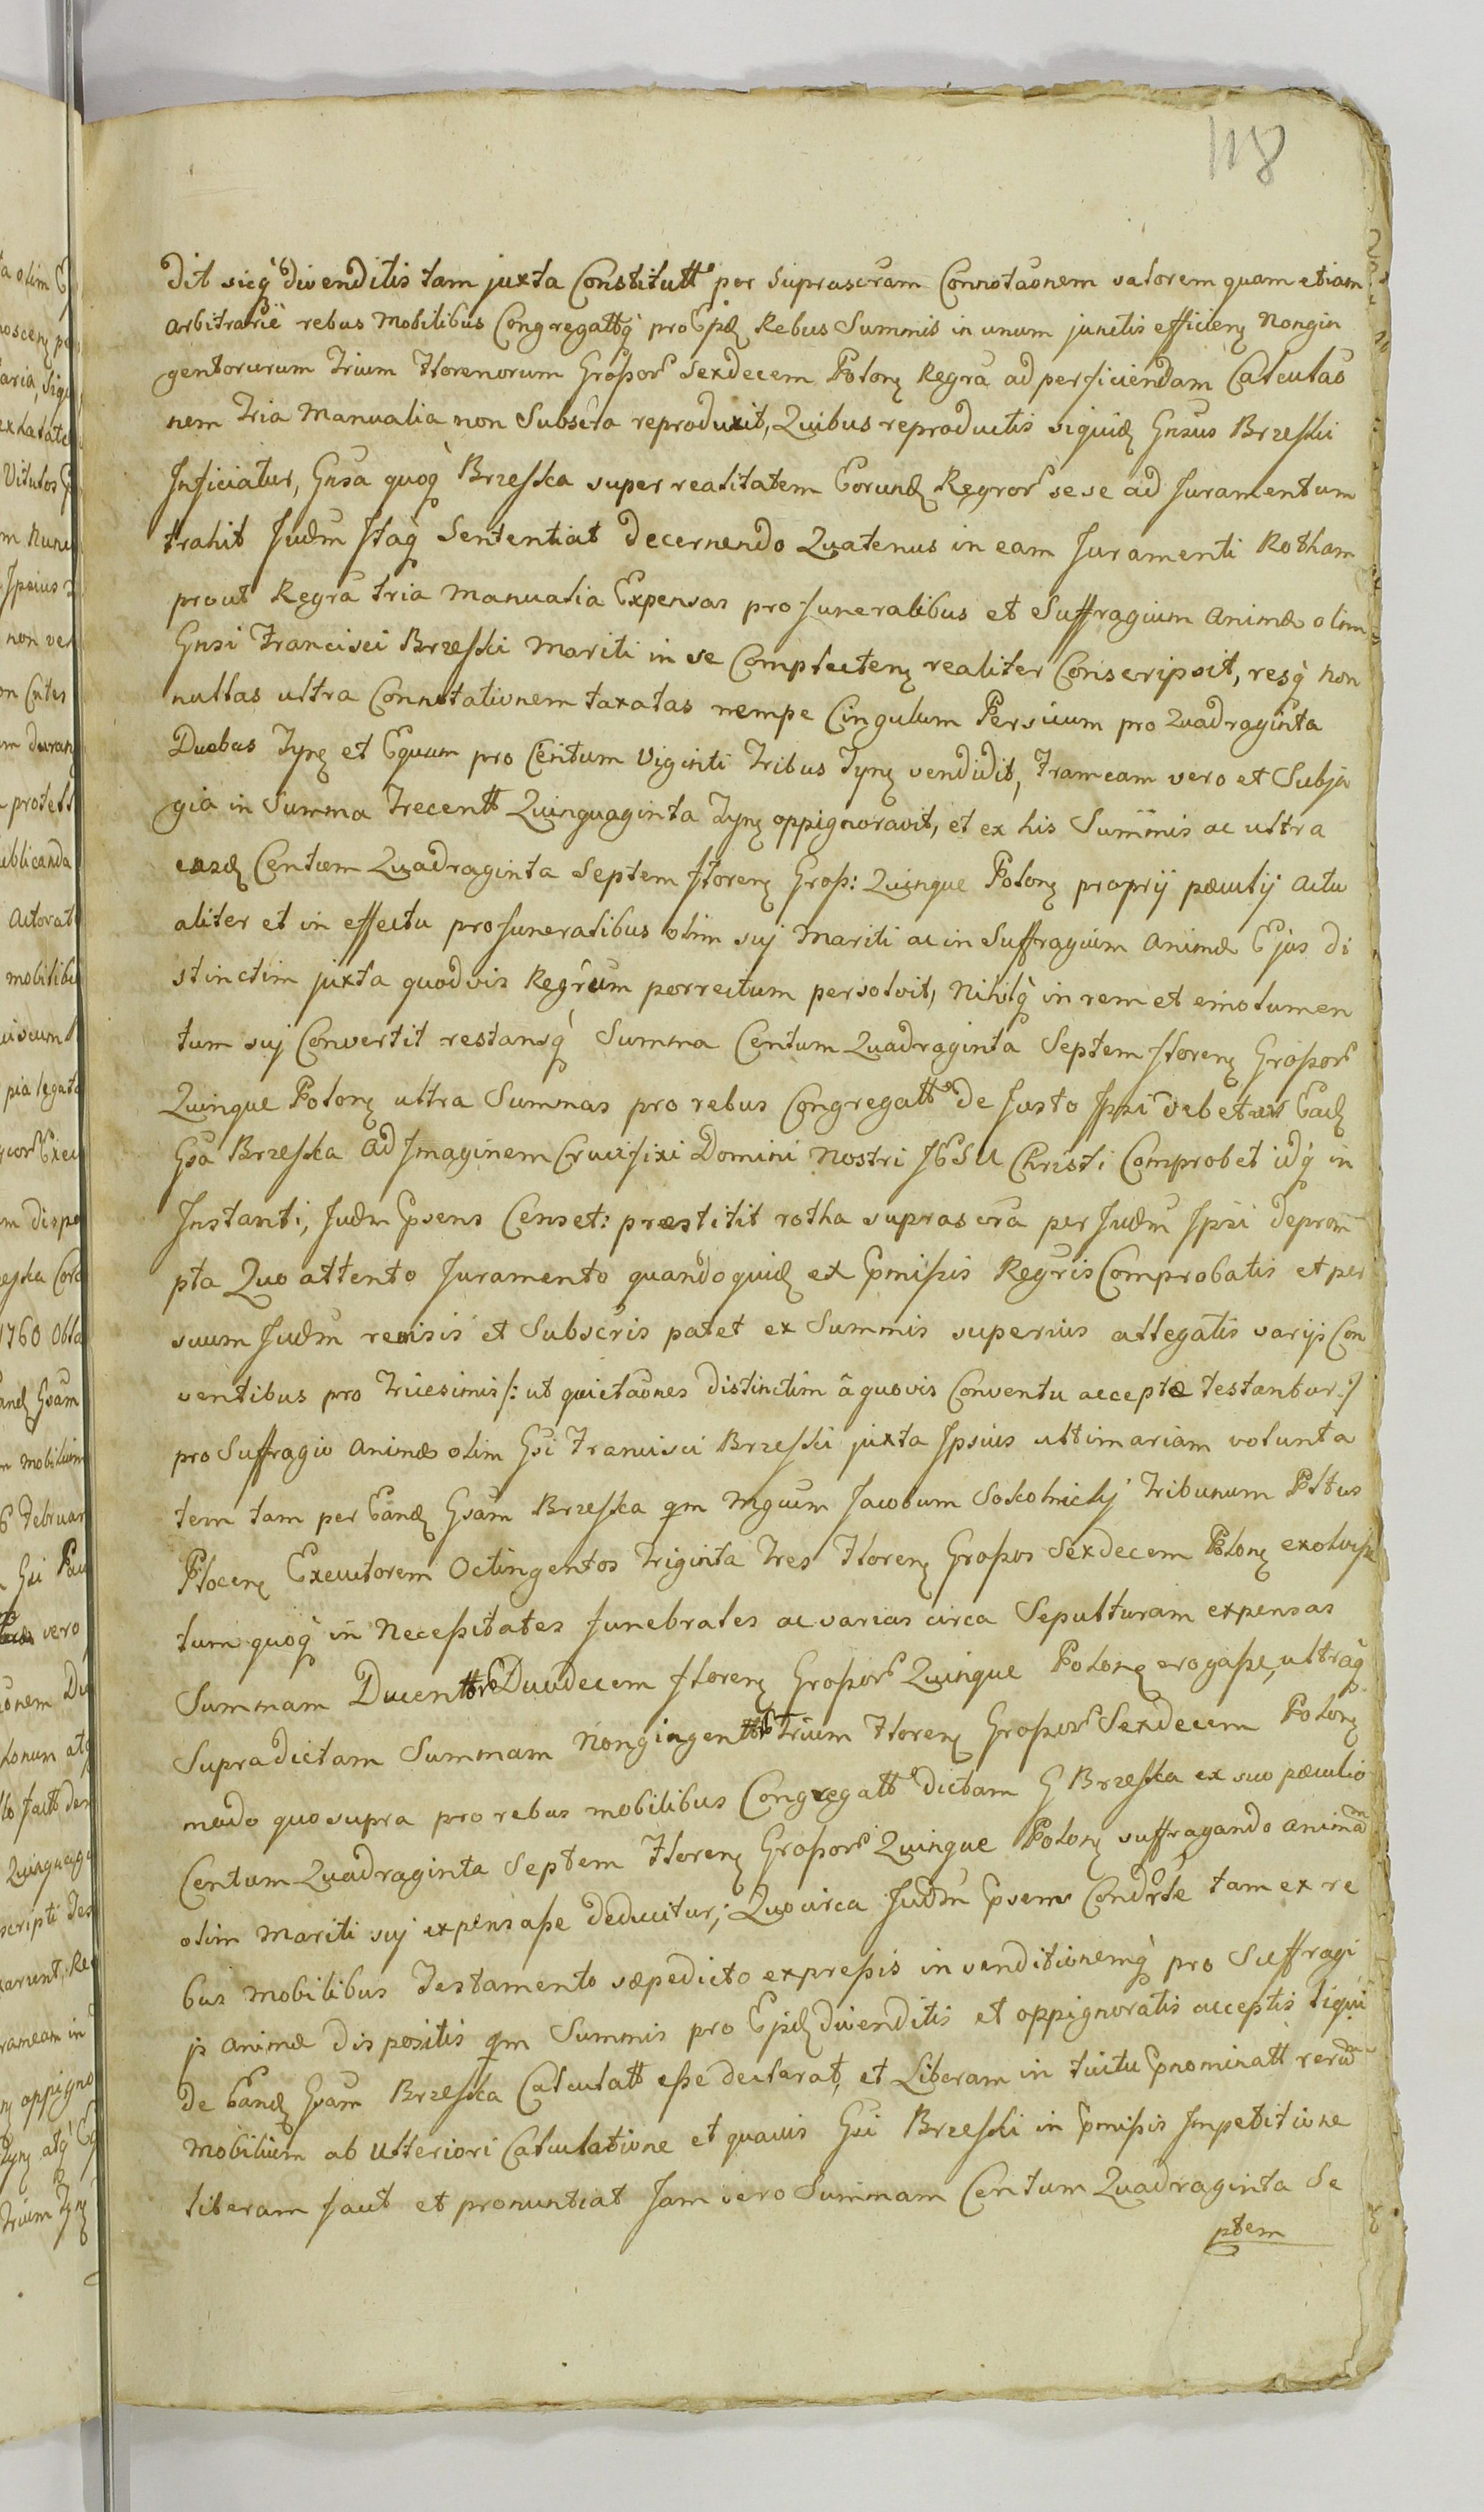 118
dit sicq́ divenditis tam juxta Constitutt per Suprascram Connotaonem valorem quam etiam
arbitrarie rebus Mobilibus Congregattq́ pro Rebus Summis in unum junctis efficien Nongin
gentorurum Trium Florenorum Großor Sexdecem Polon Regra ad perficiendam Calculao
nem Tria Manualia non Subscta reproduxit, Quibus reproductis siquid Gnsus Brzeski
Inficiatur, Gnsa quoq́ Brzeska super realitatem Eorund Regror sese ad Juramentum
trahit Judm Itaq́ Sententiat decernendo Quatenus in eam Juramenti Rotham
prout Regra tria Manualia Expensas pro funeralibus et Suffragium Animæ olim
Gnsi Francisci Brzeski Mariti in se Complecten realiter Conscripsit, resq́ non
nullas ultra Connotationem taxatas nempe Cingulum Persicum pro Quadraginta
Duobus Tyn et Equum pro Centum Viginti Tribus Tyn vendidit, Frameam vero et Subja
gia in Summa Trecentt Quinquaginta Tyn oppignoravit, et ex his Summis ac ultra
easd Centum Quadraginta Septem floren Groß: Quinque Polon proprij pæculij Actu
aliter et in effectu pro funeralibus olim suj Mariti ac in Suffragium Animæ Ejus di
stinctim juxta quodvis Regrum porrectum persolvit, Nihilq́ in rem et emolumen
tum suj Convertit restansq́ Summa Centum Quadraginta Septem floren Großor
Quinque Polon ultra Summas pro rebus Congregatt de Justo Ipsi debetur Ead
Gsa Brzeska Ad Imaginem Crucifixi Domini Nostri JESU Christi Comprobet idq́ in
Instanti, Judm Psens Censet: præstitit rotha suprascra per Judm Ipsi deprom
pta Quo attento Juramento quandoquid ex Pmißis Regris Comprobatis et per
suum Judm revisis et Subscris patet ex Summis superius allegatis varijs Con
ventibus pro Tricesimis /: ut quietaones distinctim â quovis Conventu acceptæ testantur :/
pro Suffragio Animæ olim Gsi Francisci Brzeski juxta Ipsius ultimariam volunta
tem tam per Eand Gsam Brzeska qm Mgcum Jacobum Sokolnickj Tribunum Pltus
Plocen Executorem Octingentos Triginta Tres Floren Großos Sexdecem Polon exolviße
tum quoq́ in Neceßitates funebrales ac varias circa Sepulturam expensas
Summam Ducenttor Duodecem floren Großor Quinque Polon erogaße, ultraq́
Supradictam Summam Nongingenttor Trium Floren Großor Sexdecem Polon
modo quo supra pro rebus mobilibus Congregatt dictam G Brzeska ex suo pæculio
Centum Quadraginta Septem Floren Großor Quinque Polon suffragando animam
olim Mariti suj expensaße deducitur; Quocirca Judm Psens Condrse tam ex re
bus Mobilibus Testamento sæpedicto expreßis in venditionemq́ pro Suffragi
js Animæ dispositis qm Summis pro Ejsd divenditis et oppignoratis acceptis liqui
de Eand Gsam Brzeska Calculatt eße declarat, et Liberam in tuitu Pnominatt rerum
Mobilium ab Ulteriori Calculatione et quavis Gsi Brzeski in Pmißis Impetitione
liberam facit et pronuntiat Jam vero Summam Centum Quadraginta Se
ptem